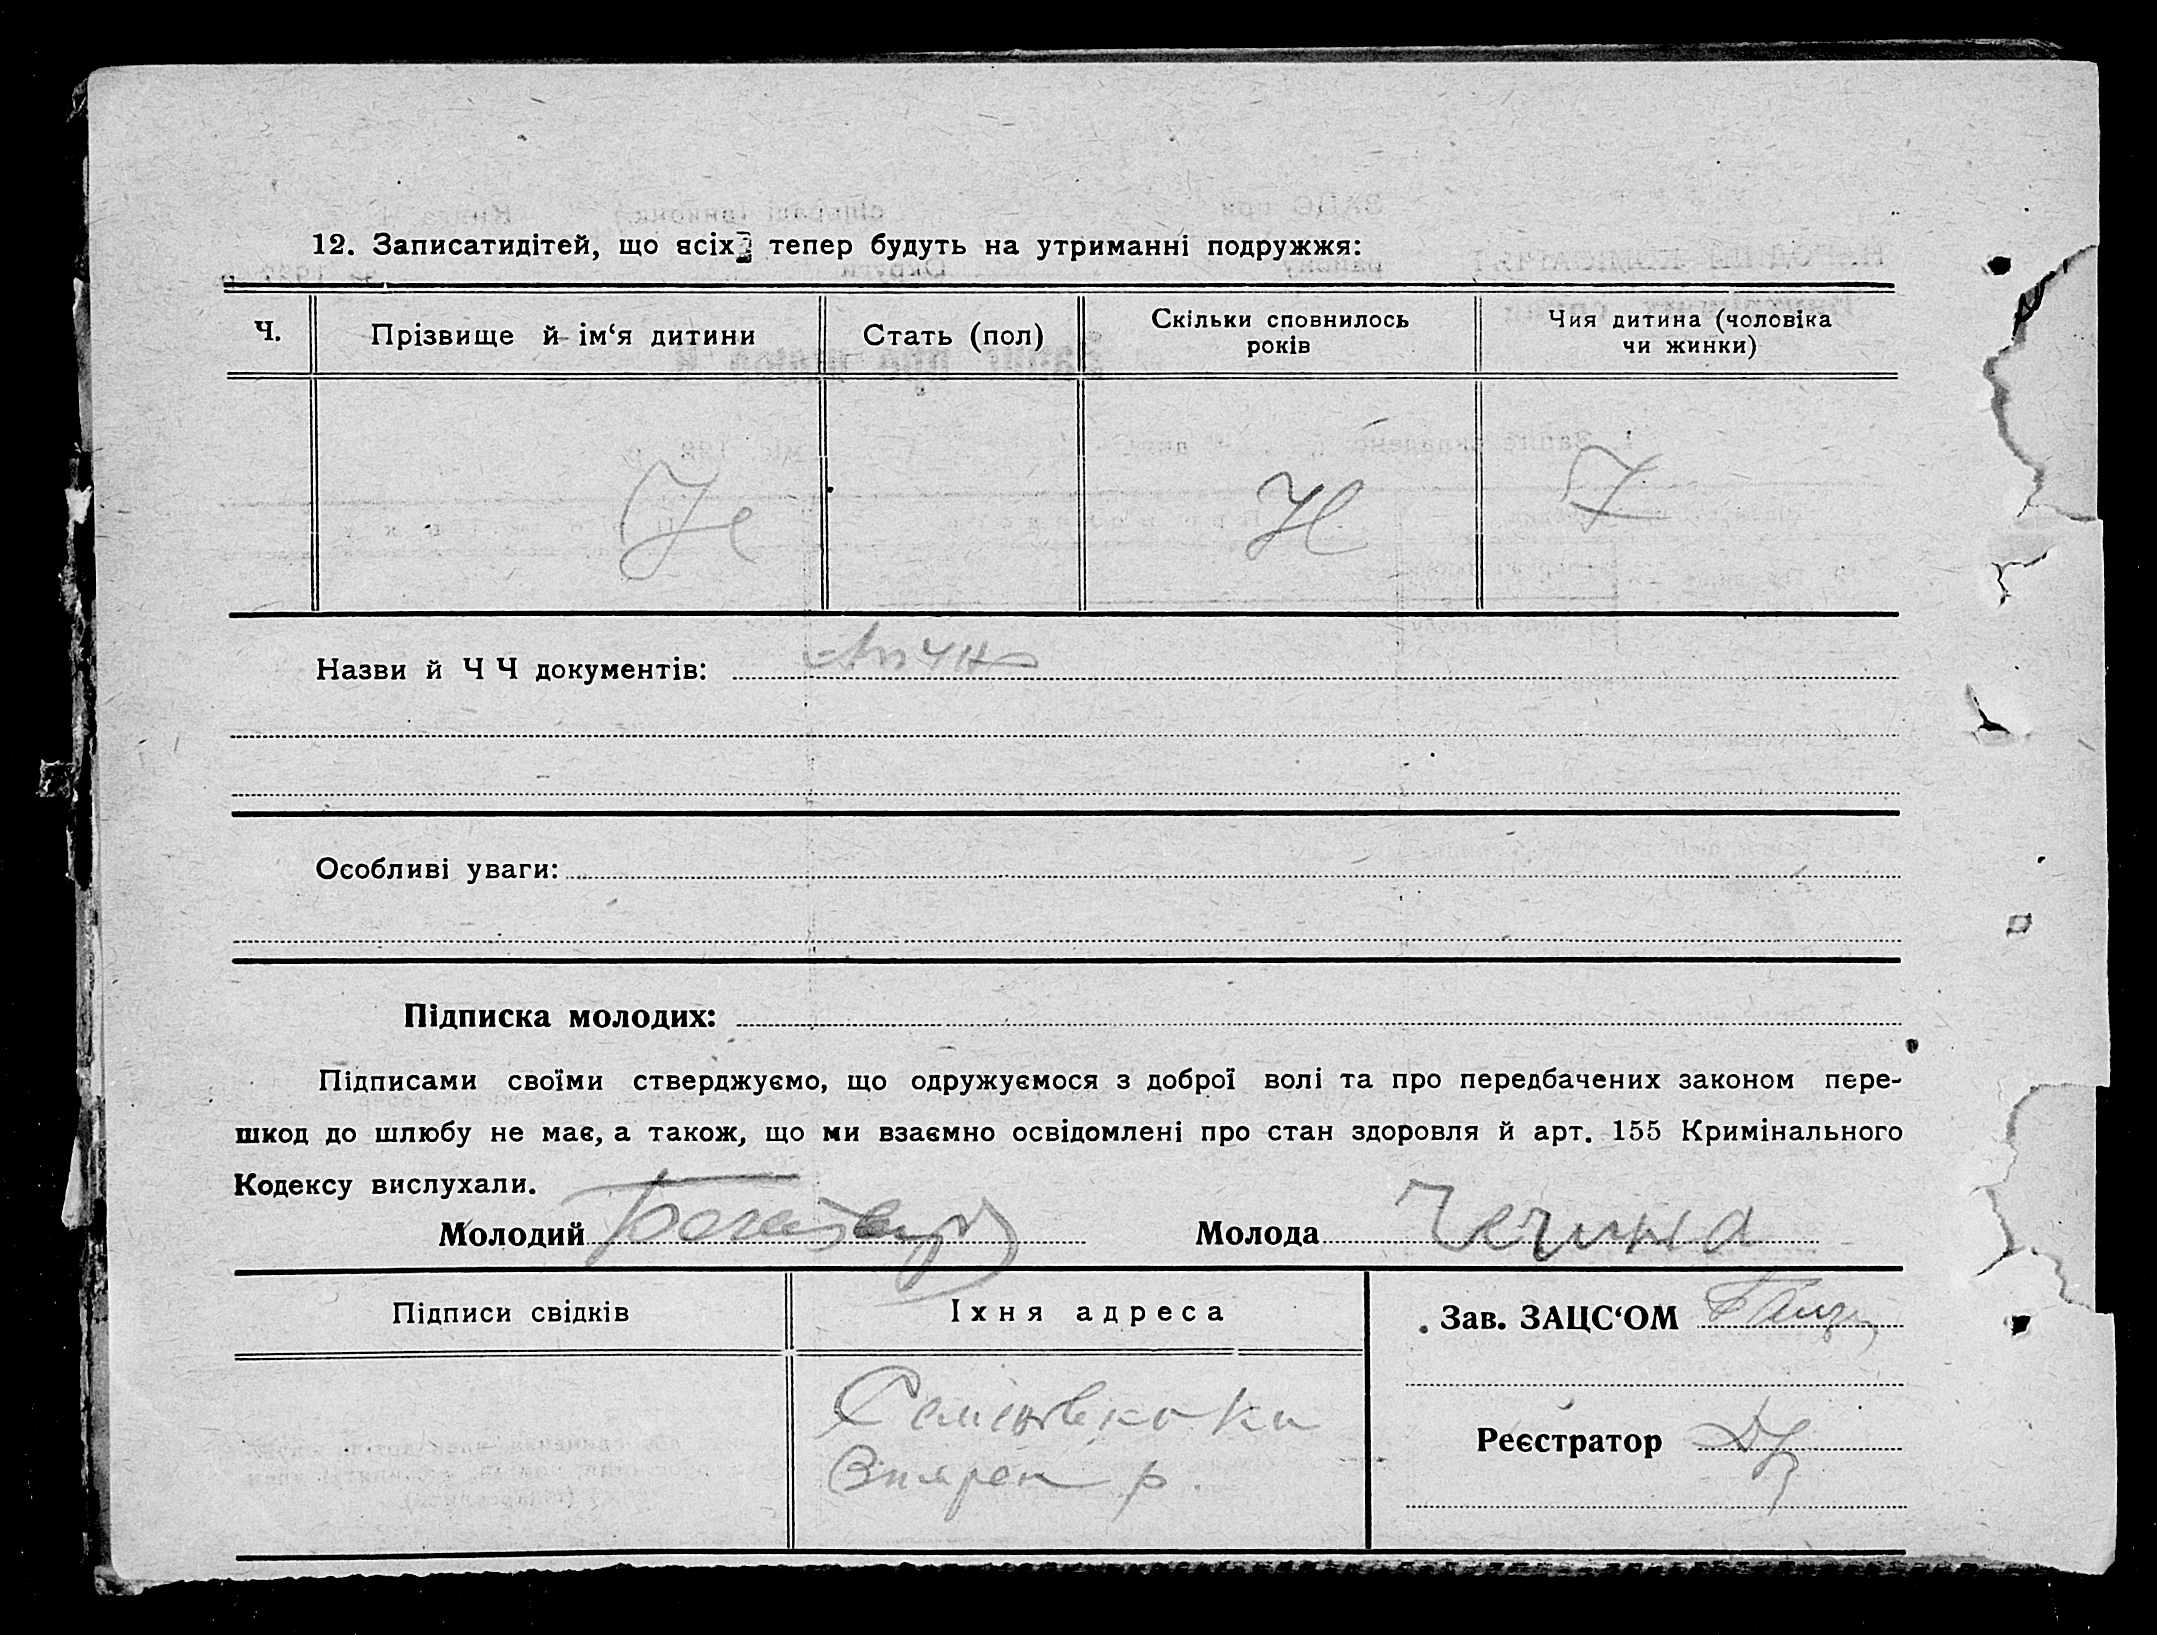 12. Записатидітей, що всіх тепер будуть на утриманні подружжя:
Ч.
Прізвище й ім‘я дитини
Стать (пол)
Скільки сповнилось
років
Чия дитина (чоловіка
чи жинки)
Назви й Ч Ч документів:
Особливі уваги:
Підписка молодих:
Підписами своїми стверджуємо, що одружуємося з доброї волі та про передбачених законом пере-
шкод до шлюбу не має, а також, що ми взаємно освідомлені про стан здоровля й арт. 155 Кримінального
Кодексу вислухали.
Молодий
Молода Чечина
Підписи свідків
Їхня адреса
Зав. ЗАЦС‘ОМ
р.
Реєстратор